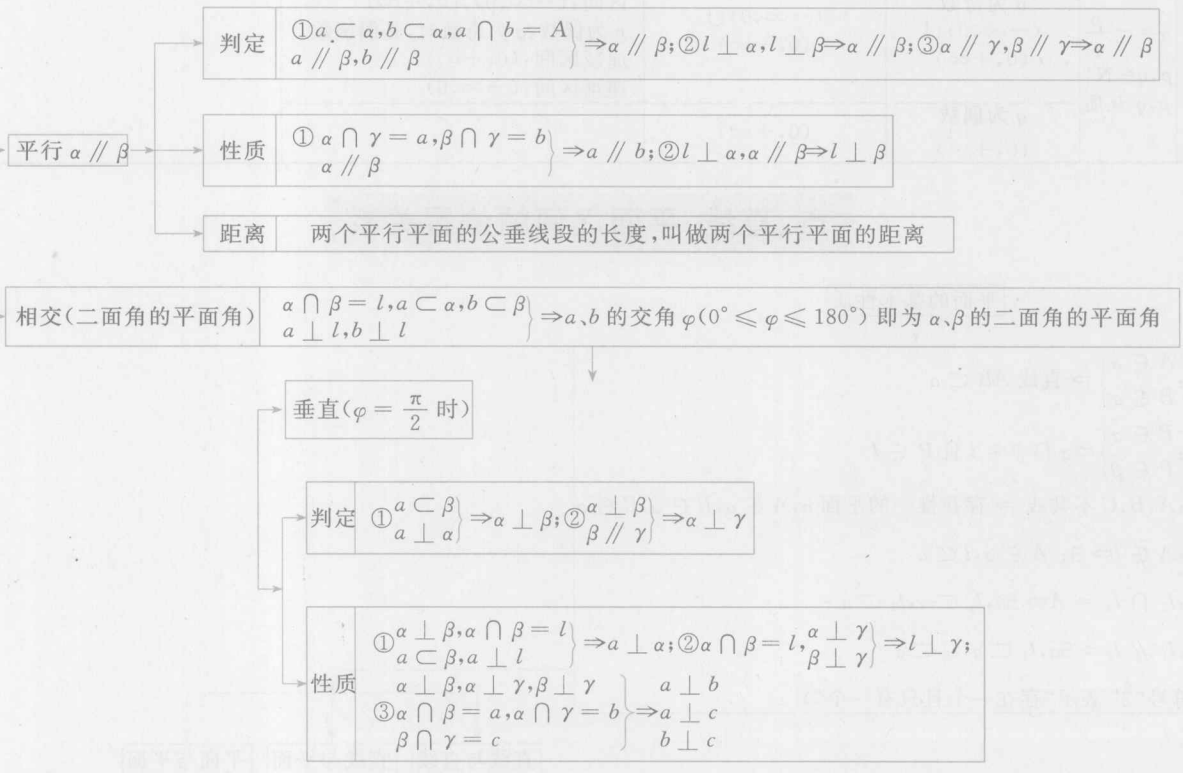 判定 ①a⊂α,b⊂α,a∩b=A
a∥β,b∥β}⇒α∥β;②l⊥α,l⊥β⇒α∥β;③α∥γ,β∥γ⇒α∥β
平行α∥β
性质 ①α∩γ=a,β∩γ=b
α∥β}⇒a∥b;②l⊥α,α∥β⇒l⊥β
距离 两个平行平面的公垂线段的长度,叫做两个平行平面的距离
相交(二面角的平面角) α∩β=l,a⊂α,b⊂β
a⊥l,b⊥l}⇒a、b的交角φ(0°≤φ≤180°)即为α、β的二面角的平面角
垂直(φ=π/2时)
判定 ①a⊂β
a⊥α}⇒α⊥β;②α⊥β
β∥γ}⇒α⊥γ
性质 ①α⊥β,α∩β=l
a⊂β,a⊥l}⇒a⊥α;②α∩β=l,α⊥γ
β⊥γ}⇒l⊥γ;
α⊥β,α⊥γ,β⊥γ a⊥b
③α∩β=a,α∩γ=b}⇒a⊥c
β∩γ=c b⊥c